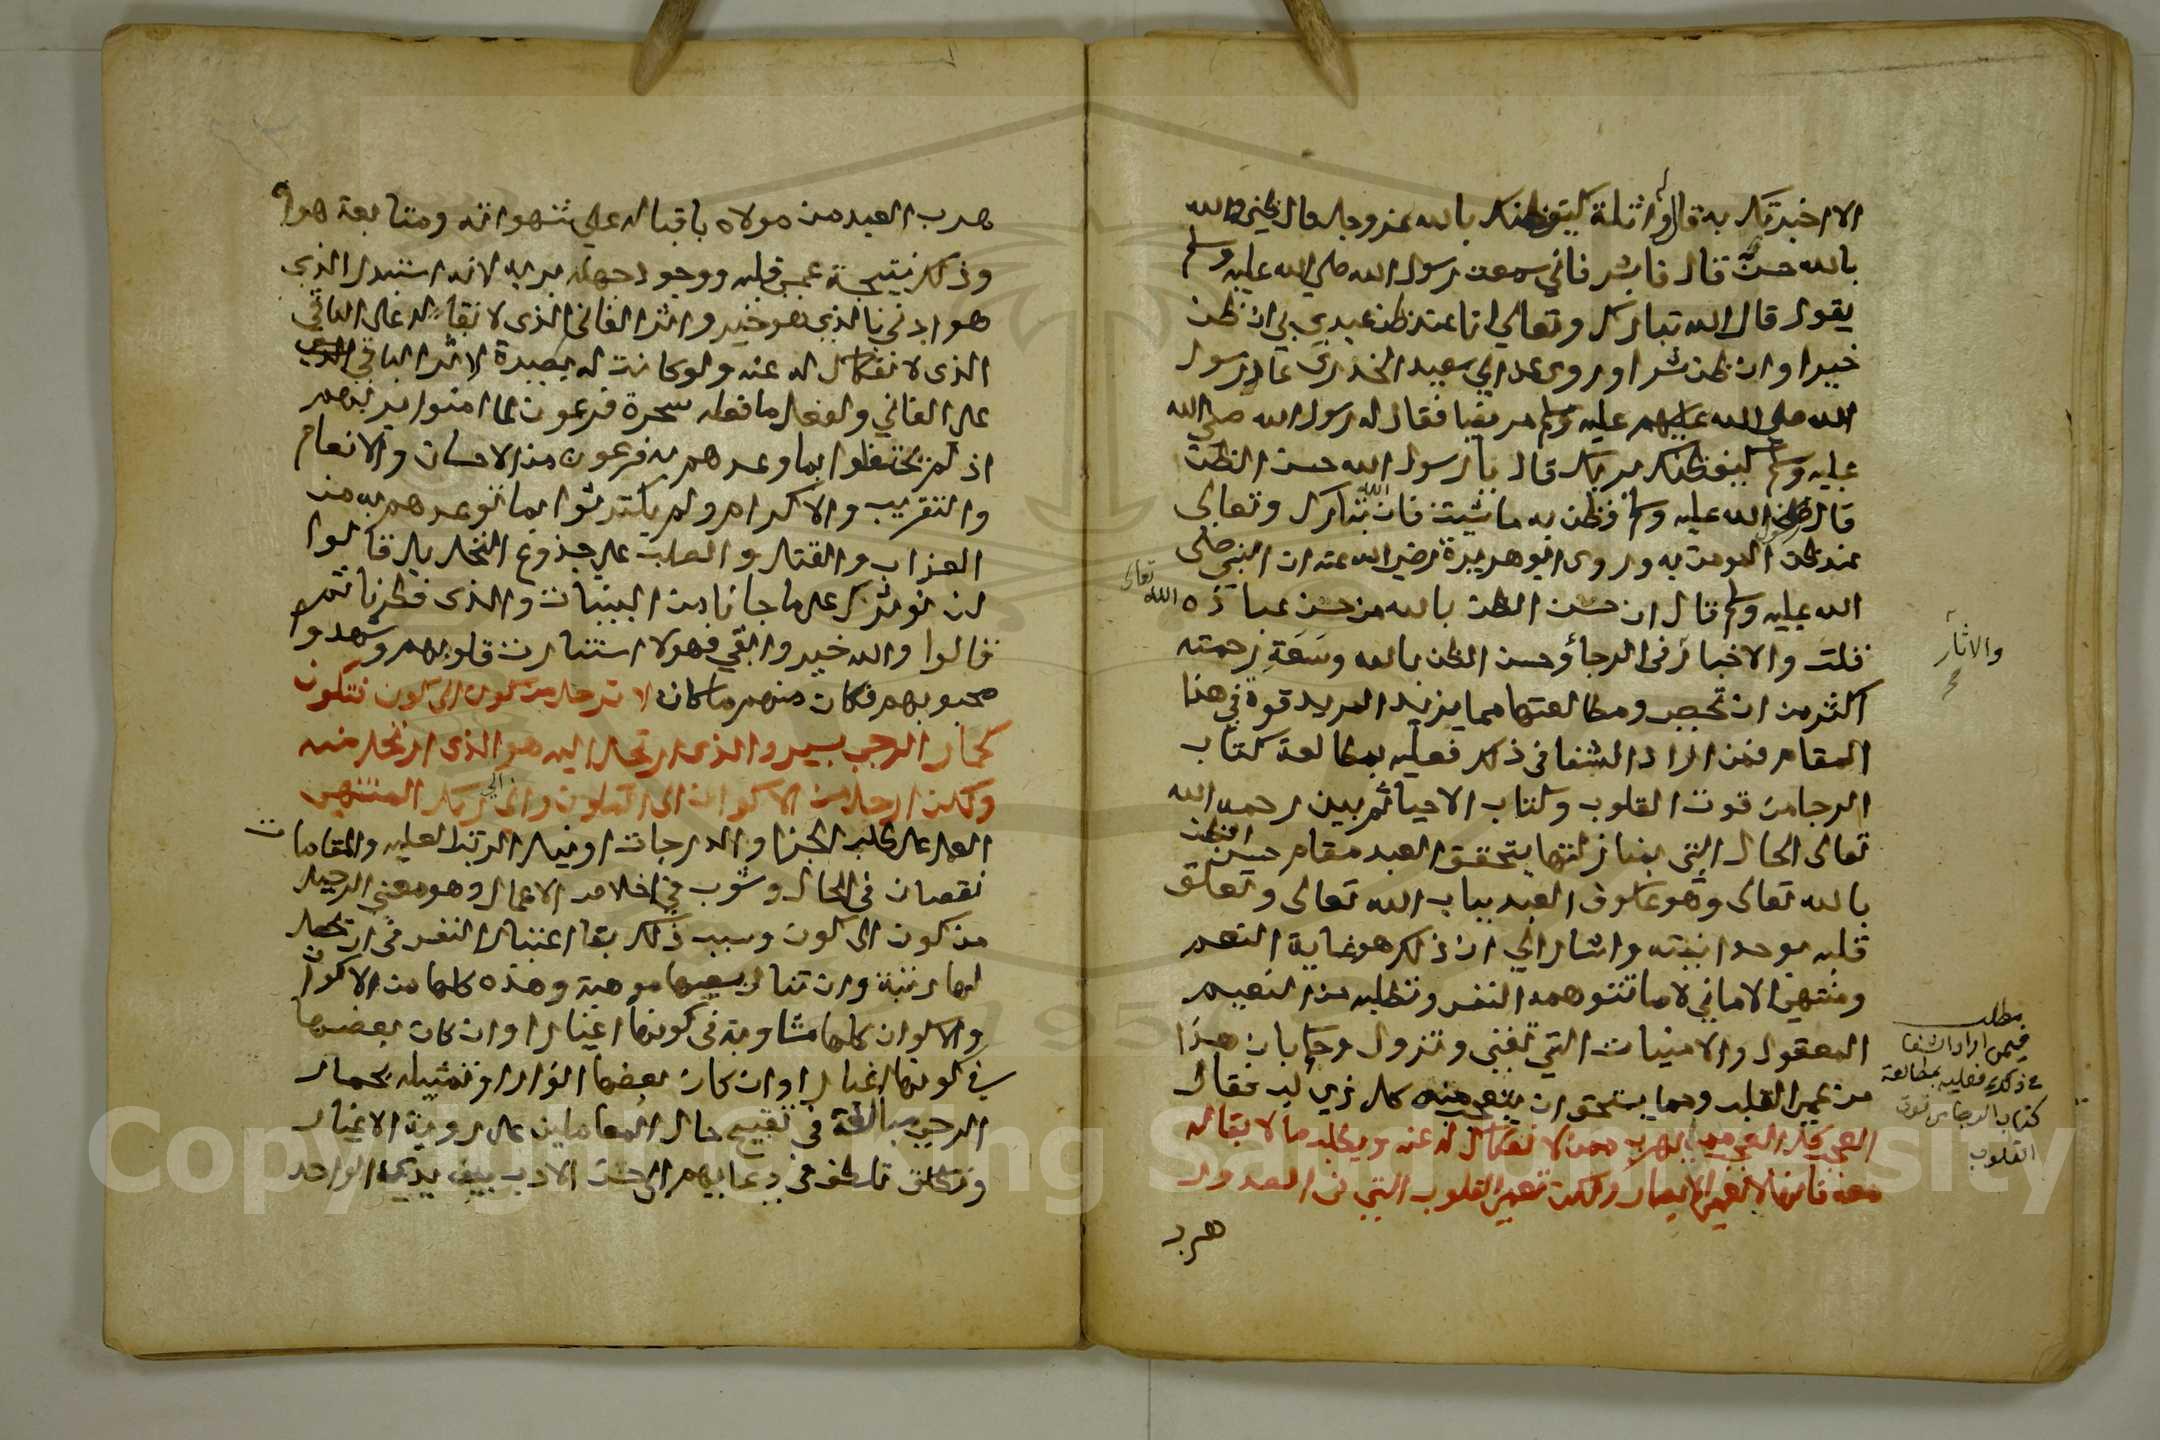 الا اخبرتك به قال واثلة كيف ظنك بالله عز وجل قال ظني والله
بالله حسن قال فابشر فاني سمعت رسول الله صلي الله عليه وسلم
يقول قال الله تبارك وتعالي انا عند ظن عبدي بي ان ظن
خيرا وان ظن شرا وروي عن ابي سعيد الخدري عاد رسول
الله صلي الله عليه وسلم مريضا فقال له رسول الله صلي الله
عليه وسلم كيف ظنك بربك قال يا رسول الله حسن الظن
قال صلي الله عليه وسلم فظن به ما شيت فان الله تبارك وتعالى
عند ظن المومن به وروي ابو هريرة رضي الله عنه ان النبي صلي
الله عليه وسلم قال ان حسن الظن بالله من حسن عبادة الله تعالى
قلت والاخبار في الرجاء وحسن الظن بالله وسعة رحمته
والاثار
صح
اكثر من ان تحصر ومطالعتها مما يزيد المريد قوة في هذا
المقام فمن اراد الشفا في ذلك فعليه بمطالعة كتاب
الرجا من قوت القلوب وكتاب الاحيا ثم بين رحمه الله
تعالى الحال التي بمنازلتها يتحقق العبد مقام حسن الظن
بالله تعالى وهو عكوف العبد بباب الله تعالى وتعلق
قلبه بوحدانيته واشار الي ان ذلك هو غاية النعم
ومنتهي الاماني لا ما تتوهمه النفس وتطلبه من النعيم
المعقول والامنيات التي تفني وتزول وحجابات هذا
مطلب
فيمن اراد الشفا
في ذلك فعليه بمطالعة
كتاب الرجا من قوت
القلوب
من عمي القلب ومما يستحق ان يتعجب منه كل ذي لب فقال
العجب كل العجب ممن يهرب ممن لا انفكاك له عنه ويطلب ما لا بقا له
معه فانها لا تعمي الابصار ولكن تعمي القلوب التي في الصدور
هرب
هرب العبد من مولاه باقباله علي شهواته ومتابعة هواه
وذلك نتيجة عمي قلبه ووجود جهله بربه لانه استبدل الذي
هو ادني بالذي هو خير واثر الفاني الذي لا بقا له على الباقي
الذي لا انفكاك له عنه ولو كانت له بصيرة لاثر الباقي
على الفاني ولفعل ما فعله سحرة فرعون لما امنوا بربهم
اذ لم يحتفلوا بما وعدهم به فرعون من الاحسان والانعام
والتقريب والاكرام ولم يكترثوا بما توعدهم به من
العذاب والقتل والصلب علي جذوع النخل بل قالوا
لن نوثرك على ما جانا من البينات والذي فطرنا ثم
قالوا والله خير وابقي فهولا استنارت قلوبهم وشهدوا
محبوبهم فكان منهم ما كان لا ترحل من كون الى كون فتكون
كحمار الرحي يسير والذي ارتحل اليه هو الذي ارتحل منه
ولكن ارحل من الاكوان الى المكون وان الي ربك المنتهى
العمل على طلب الجزا والدرجات او نيل الرتب العليه والمقامات
نقصان في الحال وشوب في اخلاص الاعمال وهو معني الرحيل
من كون الى كون وسبب ذلك بقا اعتبار النفس في ان تحصل
لها رتبة وان تنال بسعيها موهبة وهذه كلها من الاكوان
والاكوان كلها متساوية في كونها اغيارا وان كان بعضها
في كونها اغيارا وان كان بعضها انوارا وتمثيله بحمار
الرحي مبالغة في تقبيح حال العاملين على روية الاغيار
وتلطف في دعايهم الى حسن الادب بين يدي الواحد